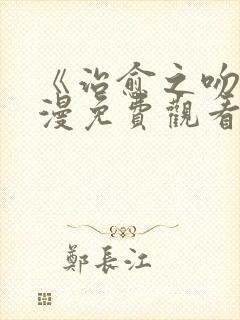 《治愈之吻
漫免費觀看
鄭長江